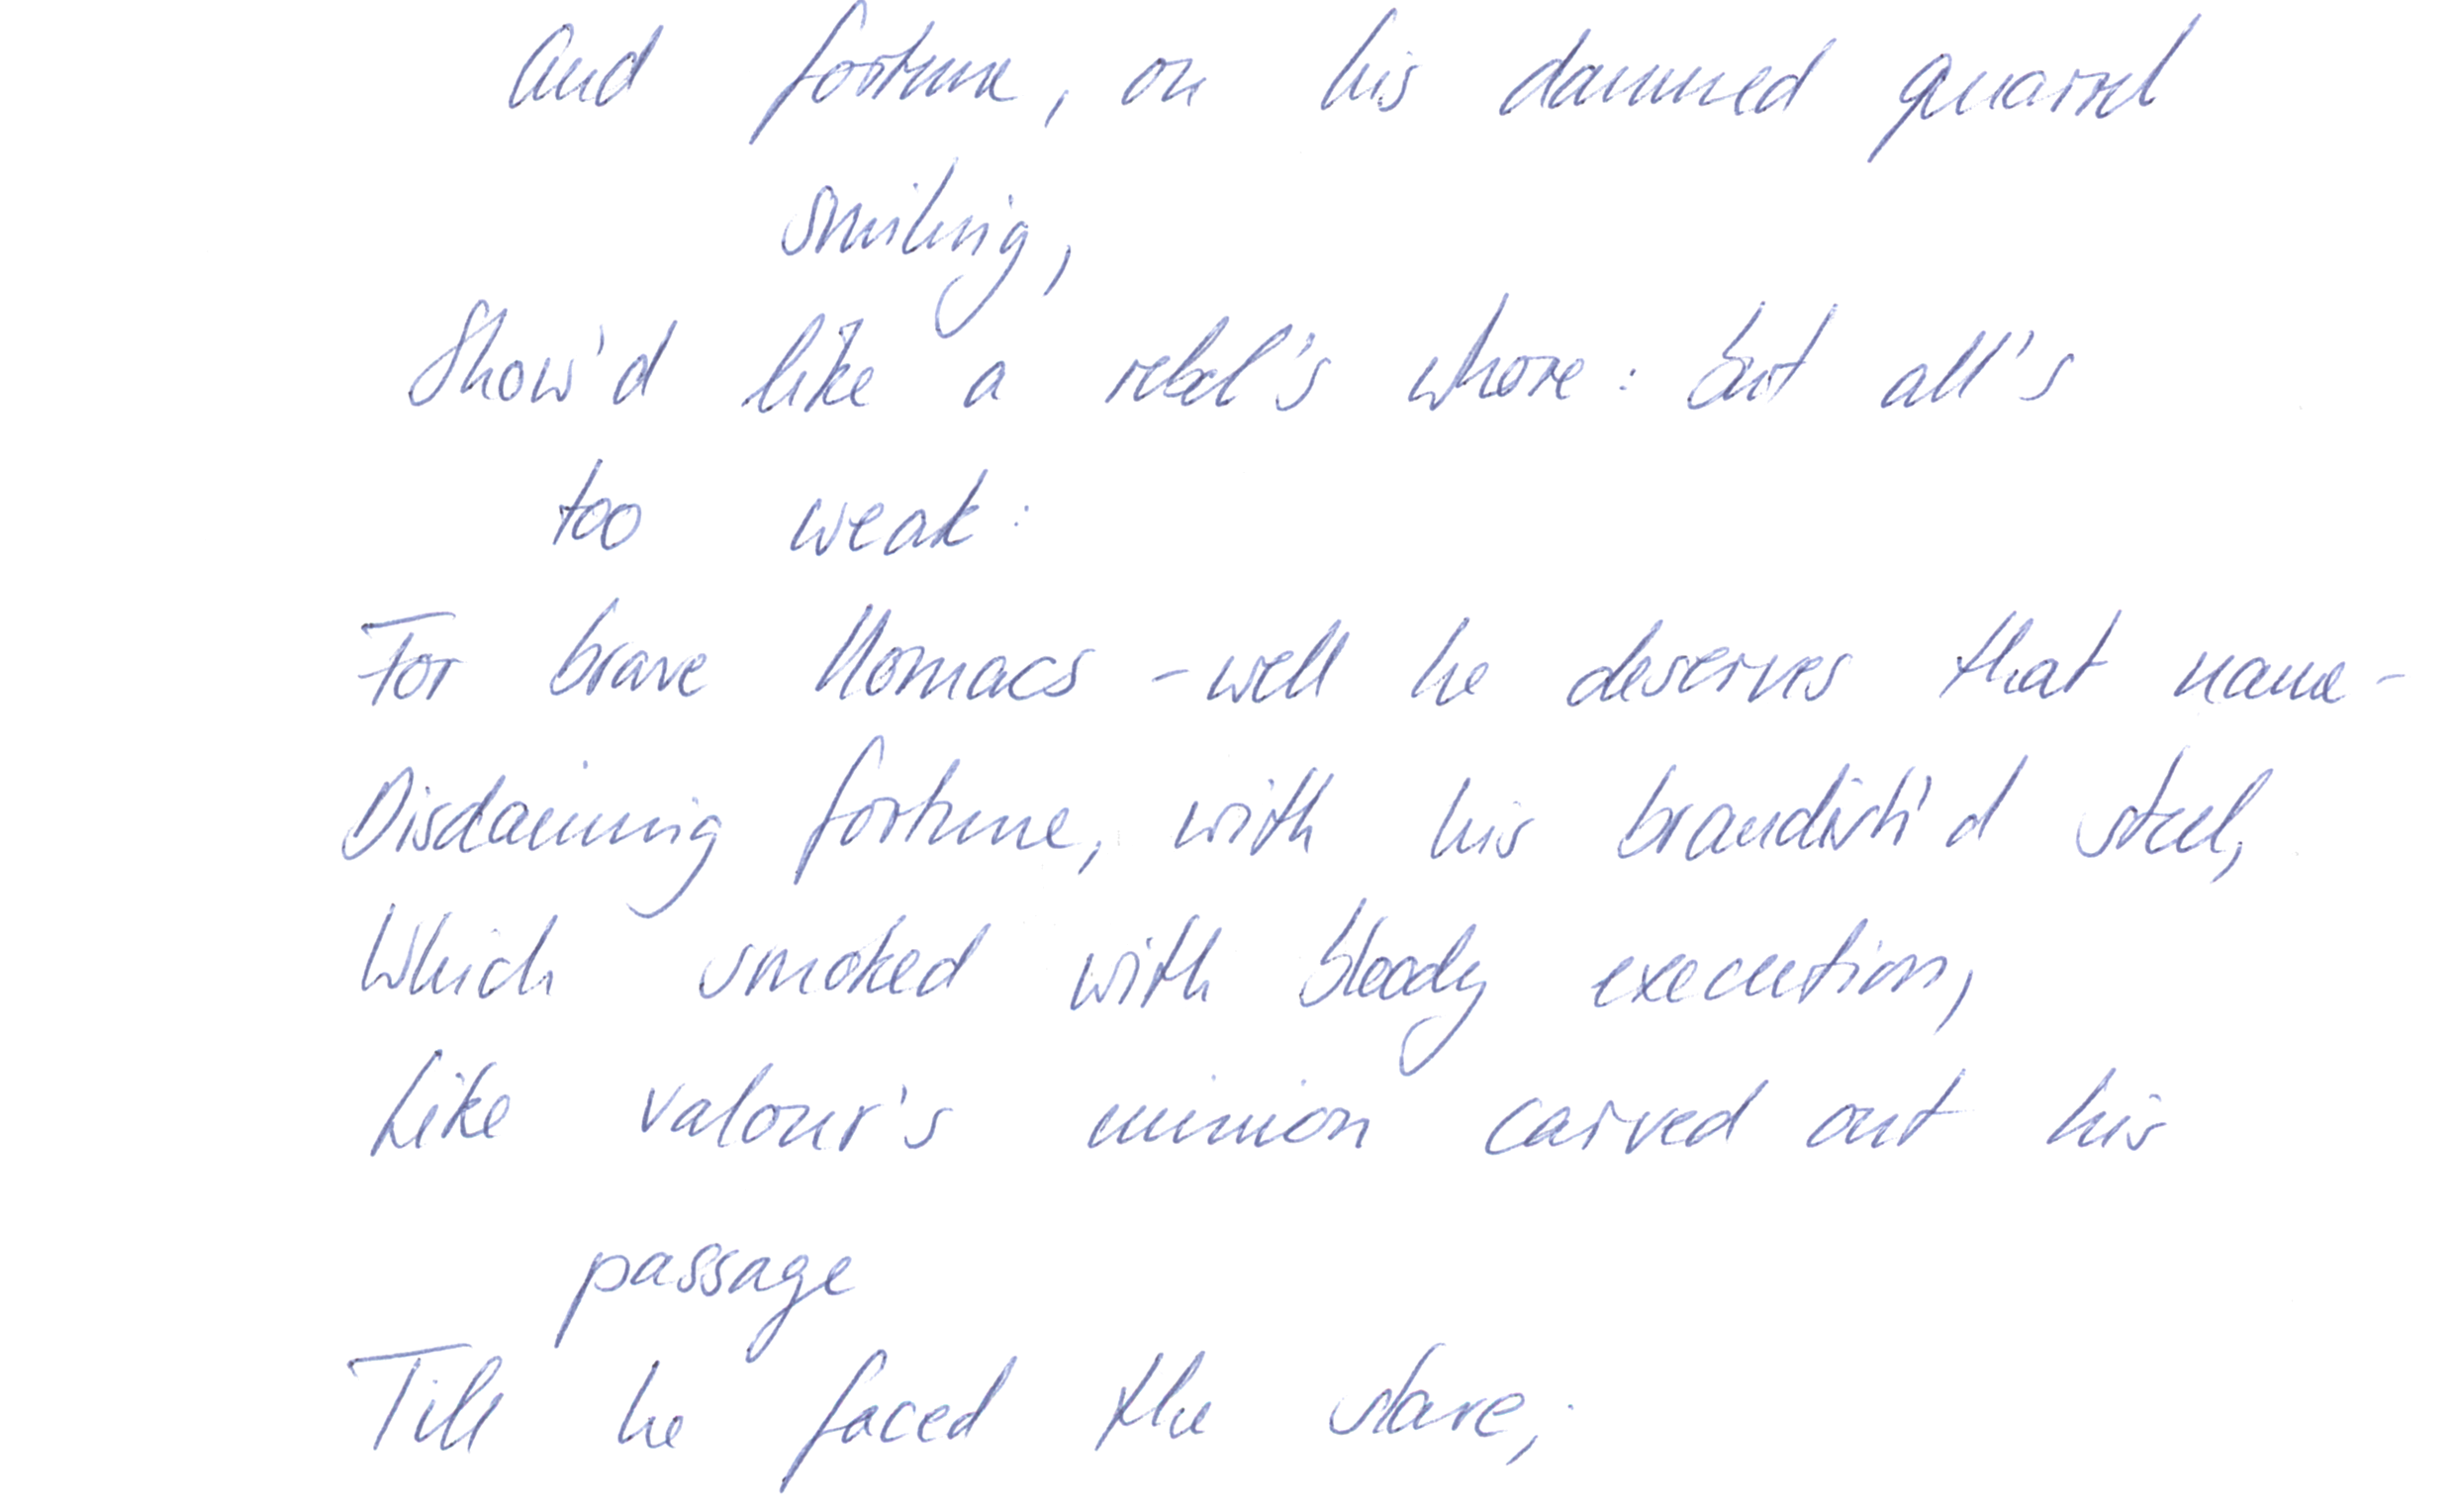 And fortune, on his damned quarrel
smiling,
Show'd like a rebel's whore: but all's
too weak:
For brave Nomacs - well he deserves that name -
Disdaining fortune, with his brandish'd steel,
Which smoked with bloody execution,
Like valour's minion carved out his
passage
Till he faced the slave;